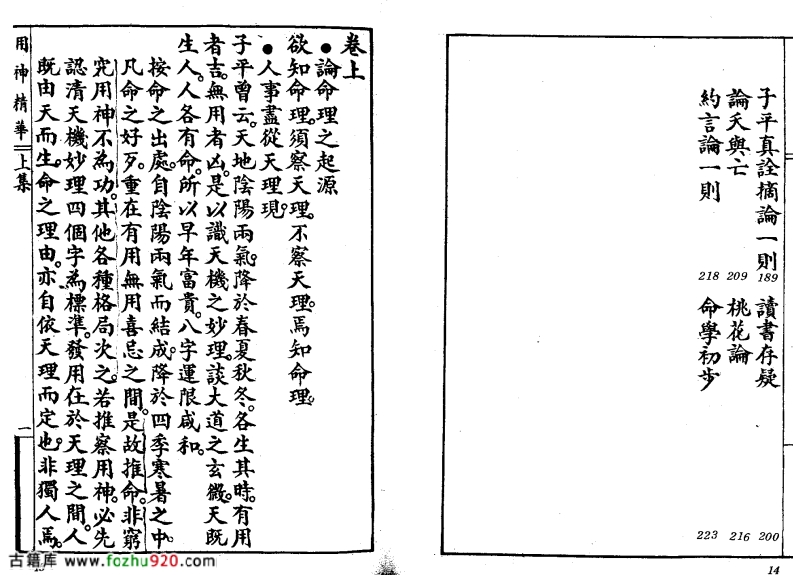 子平真詮摘論一則 189
讀書存疑 200
論夭與亡 209
桃花論 216
約言論一則 218
命學初步 223
14
卷上
●論命理之起源
欲知命理。須察天理。不察天理。焉知命理。
●人事盡從天理現。
子平曾云。天地陰陽兩氣。降於春夏秋冬。各生其時。有用
者吉。無用者凶。是以識天機之妙理。談大道之玄微。天既
生人。人各有命。所以早年富貴。八字運限咸和。
按命之出處。自陰陽兩氣而結成。降於四季寒暑之中。
凡命之好歹。重在有用無用喜忌之間。是故推命。非窮
究用神不為功。其他各種格局次之。若推察用神。必先
認清天機妙理四個字為標準。發用在於天理之間。人
既由天而生。命之理由。亦自依天理而定也。非獨人焉。
用神精華 上集
一
古籍库 www.fozhu920.com